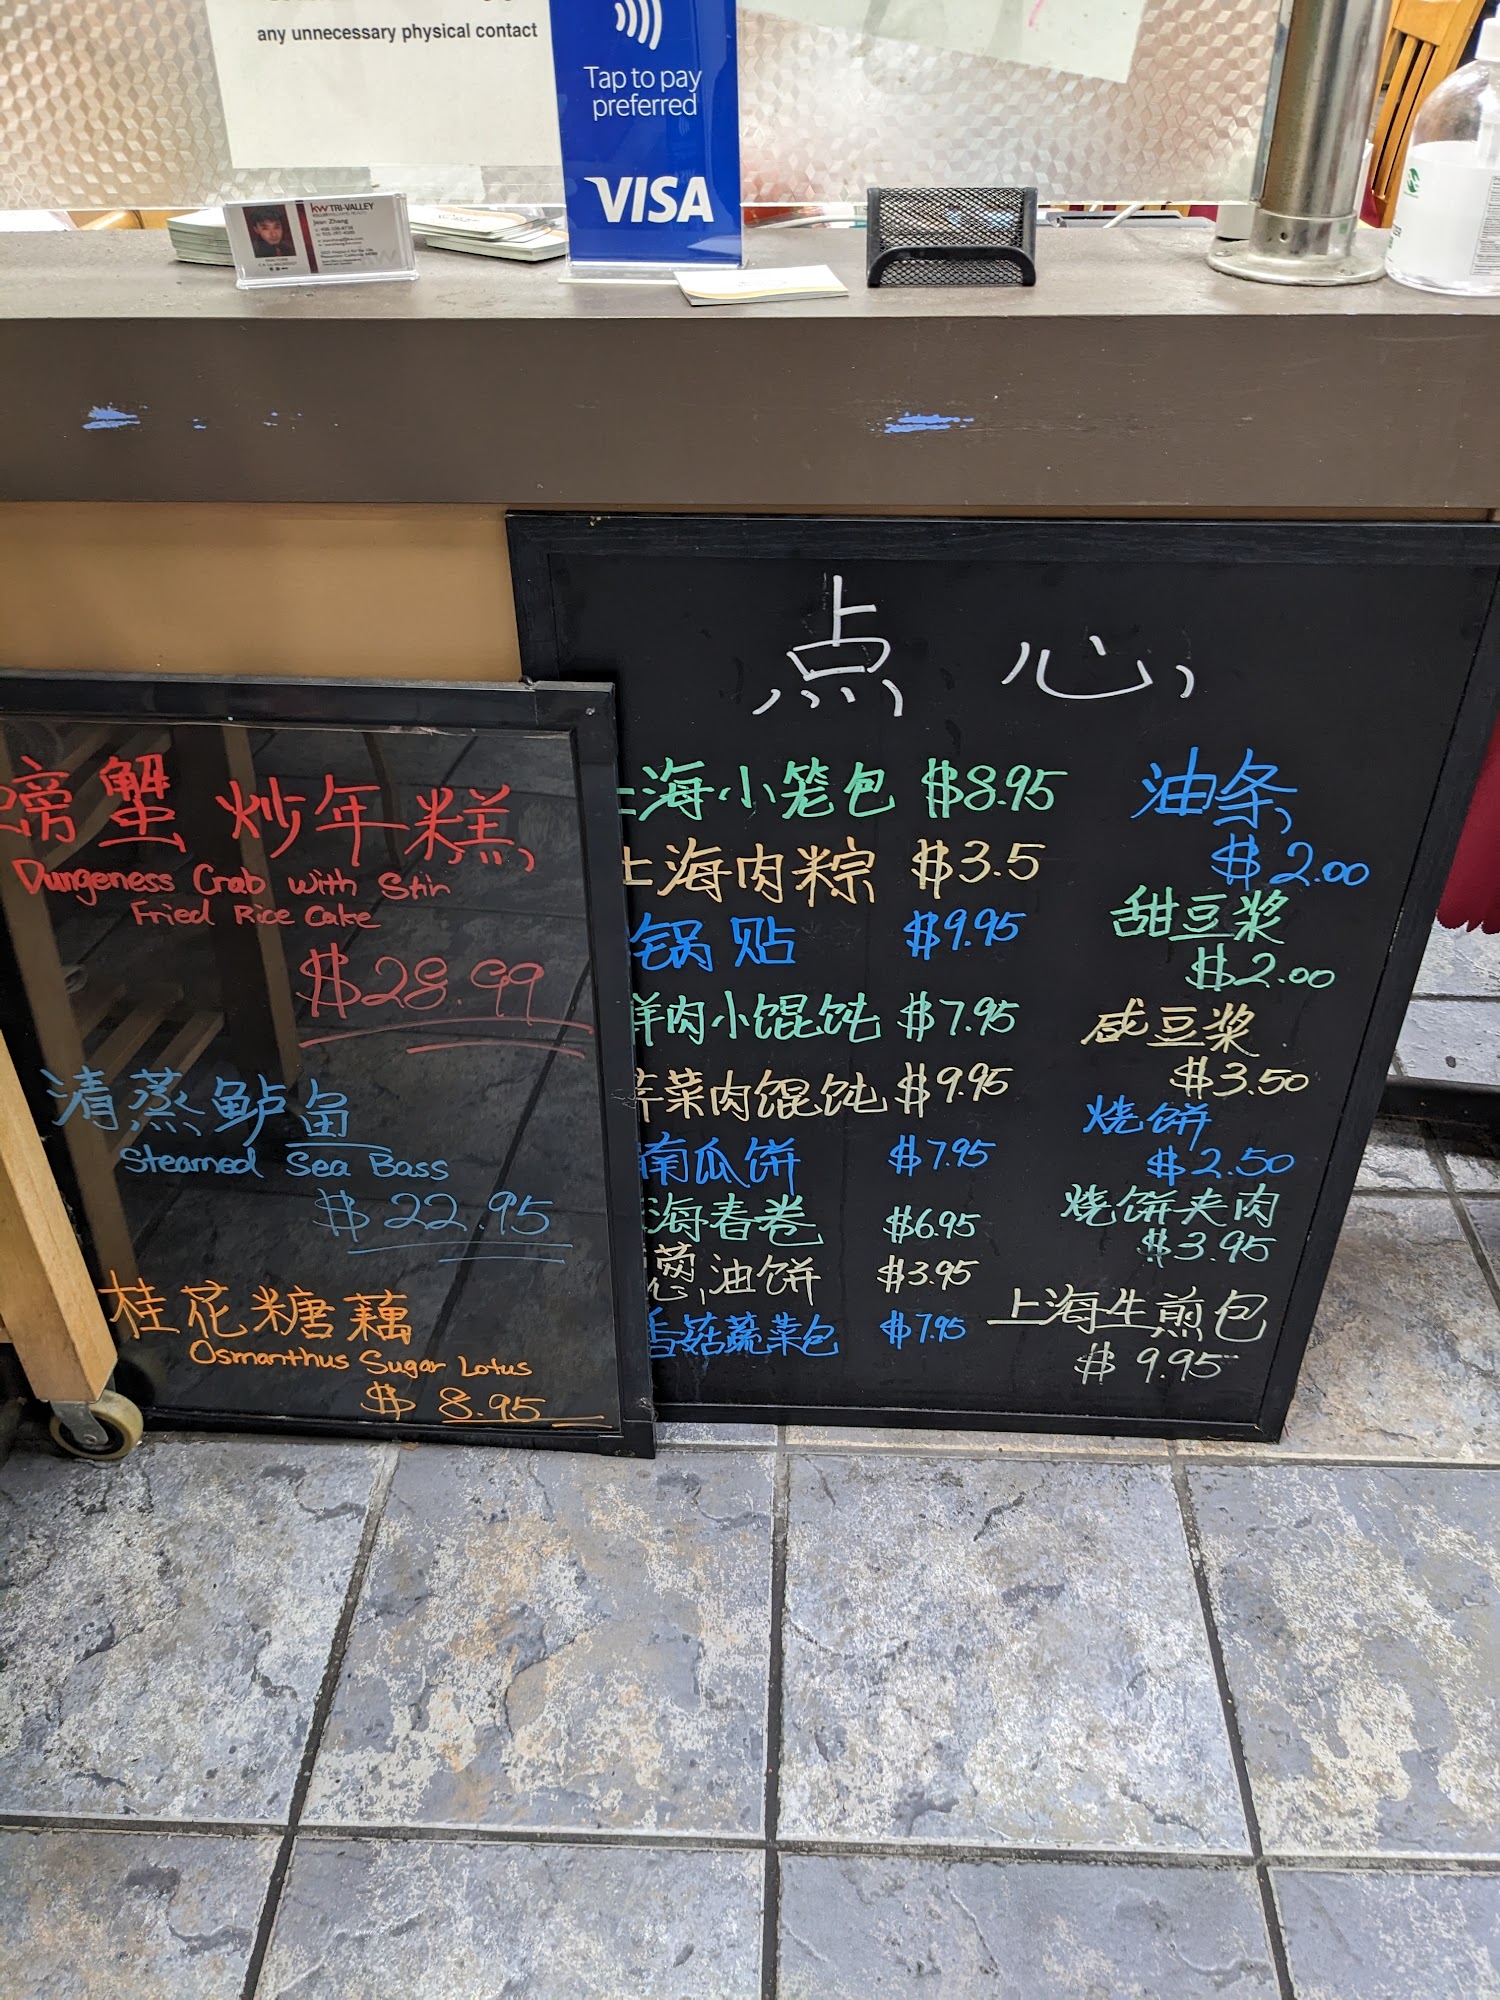 any unnecessary physical contact
Tap to pay
preferred
VISA
kw TRI-VALLEY
KELLERWILLIAMS REALTY
Jean Zhang
点心
海小笼包 $8.95
上海肉粽 $3.5
锅贴 $9.95
羊肉小馄饨 $7.95
芹菜肉馄饨 $9.95
南瓜饼 $7.95
海春卷 $6.95
葱油饼 $3.95
香菇蔬菜包 $7.95
油条
$2.00
甜豆浆
$2.00
咸豆浆
$3.50
烧饼
$2.50
烧饼夹肉
$3.95
上海生煎包
$9.95
螃蟹炒年糕
Dungeness Crab with Stir
Fried Rice Cake
$28.99
清蒸鲈鱼
Steamed Sea Bass
$22.95
桂花糖藕
Osmanthus Sugar Lotus
$8.95